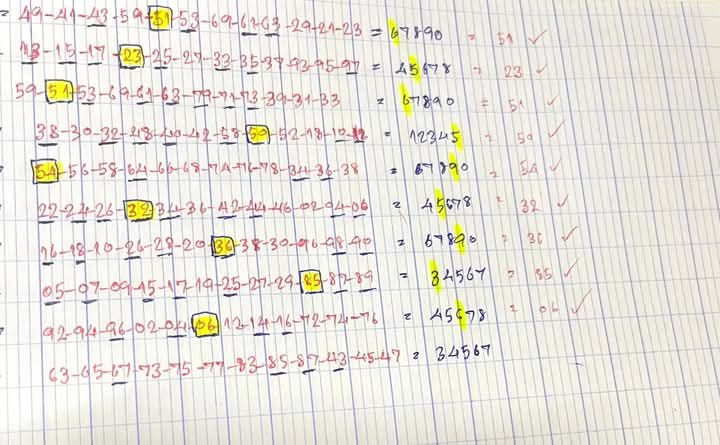 = 49-41-43-59-51-53-69-61-63-29-21-23 = 67890 = 51 ✓
13-15-17-23-25-27-33-35-37-93-95-97 = 45678 = 23 ✓
59-51-53-69-61-63-79-71-73-39-31-33 = 67890 = 51 ✓
38-30-32-48-40-42-58-50-52-18-10-12 = 12345 = 50 ✓
54-56-58-64-66-68-74-76-78-34-36-38 = 67890 = 54 ✓
22-24-26-32-34-36-42-44-46-02-04-06 = 45678 = 32 ✓
16-18-10-26-28-20-36-38-30-96-98-90 = 67890 = 36 ✓
05-07-09-15-17-19-25-27-29-85-87-89 = 34567 = 85 ✓
92-94-96-02-04-06-12-14-16-72-74-76 = 45678 = 06 ✓
63-65-67-73-75-77-83-85-87-43-45-47 = 34567